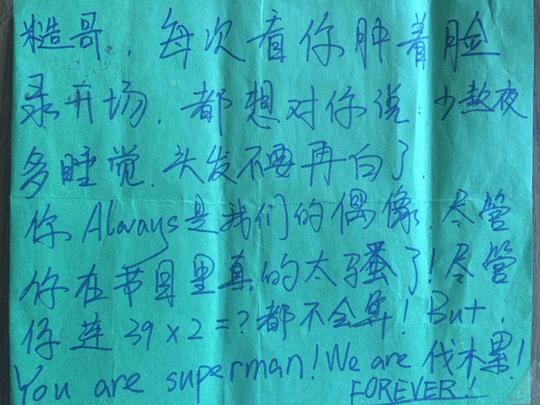 糙哥，每次看你肿着脸
录开场，都想对你说，少熬夜
多睡觉，头发不要再白了
你Always是我们的偶像，尽管
你在节目里真的太骚了！尽管
你连39×2=?都不会算！But,
You are superman! We are 伐木累!
FOREVER!